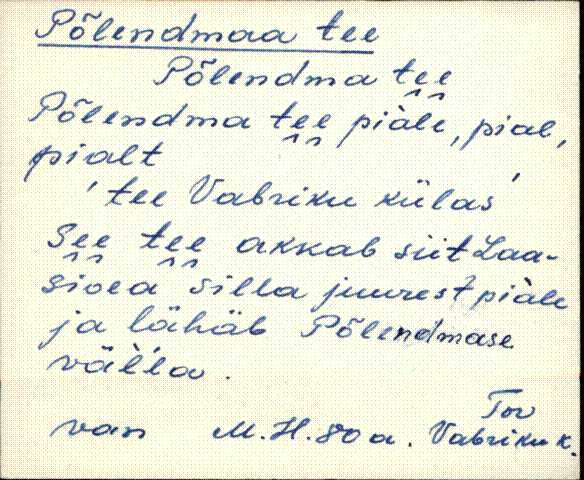 Põlendmaa tee
Põlendma tee
Põlendma tee piàle, pial,
pialt
'tee Vabriku külas'
See tee akkab siit Laa-
sioea silla juurest piàle
ja lähäb Põlendmase
vàl'l'a.
Tor
van M.H. 80 a. Vabriku k.